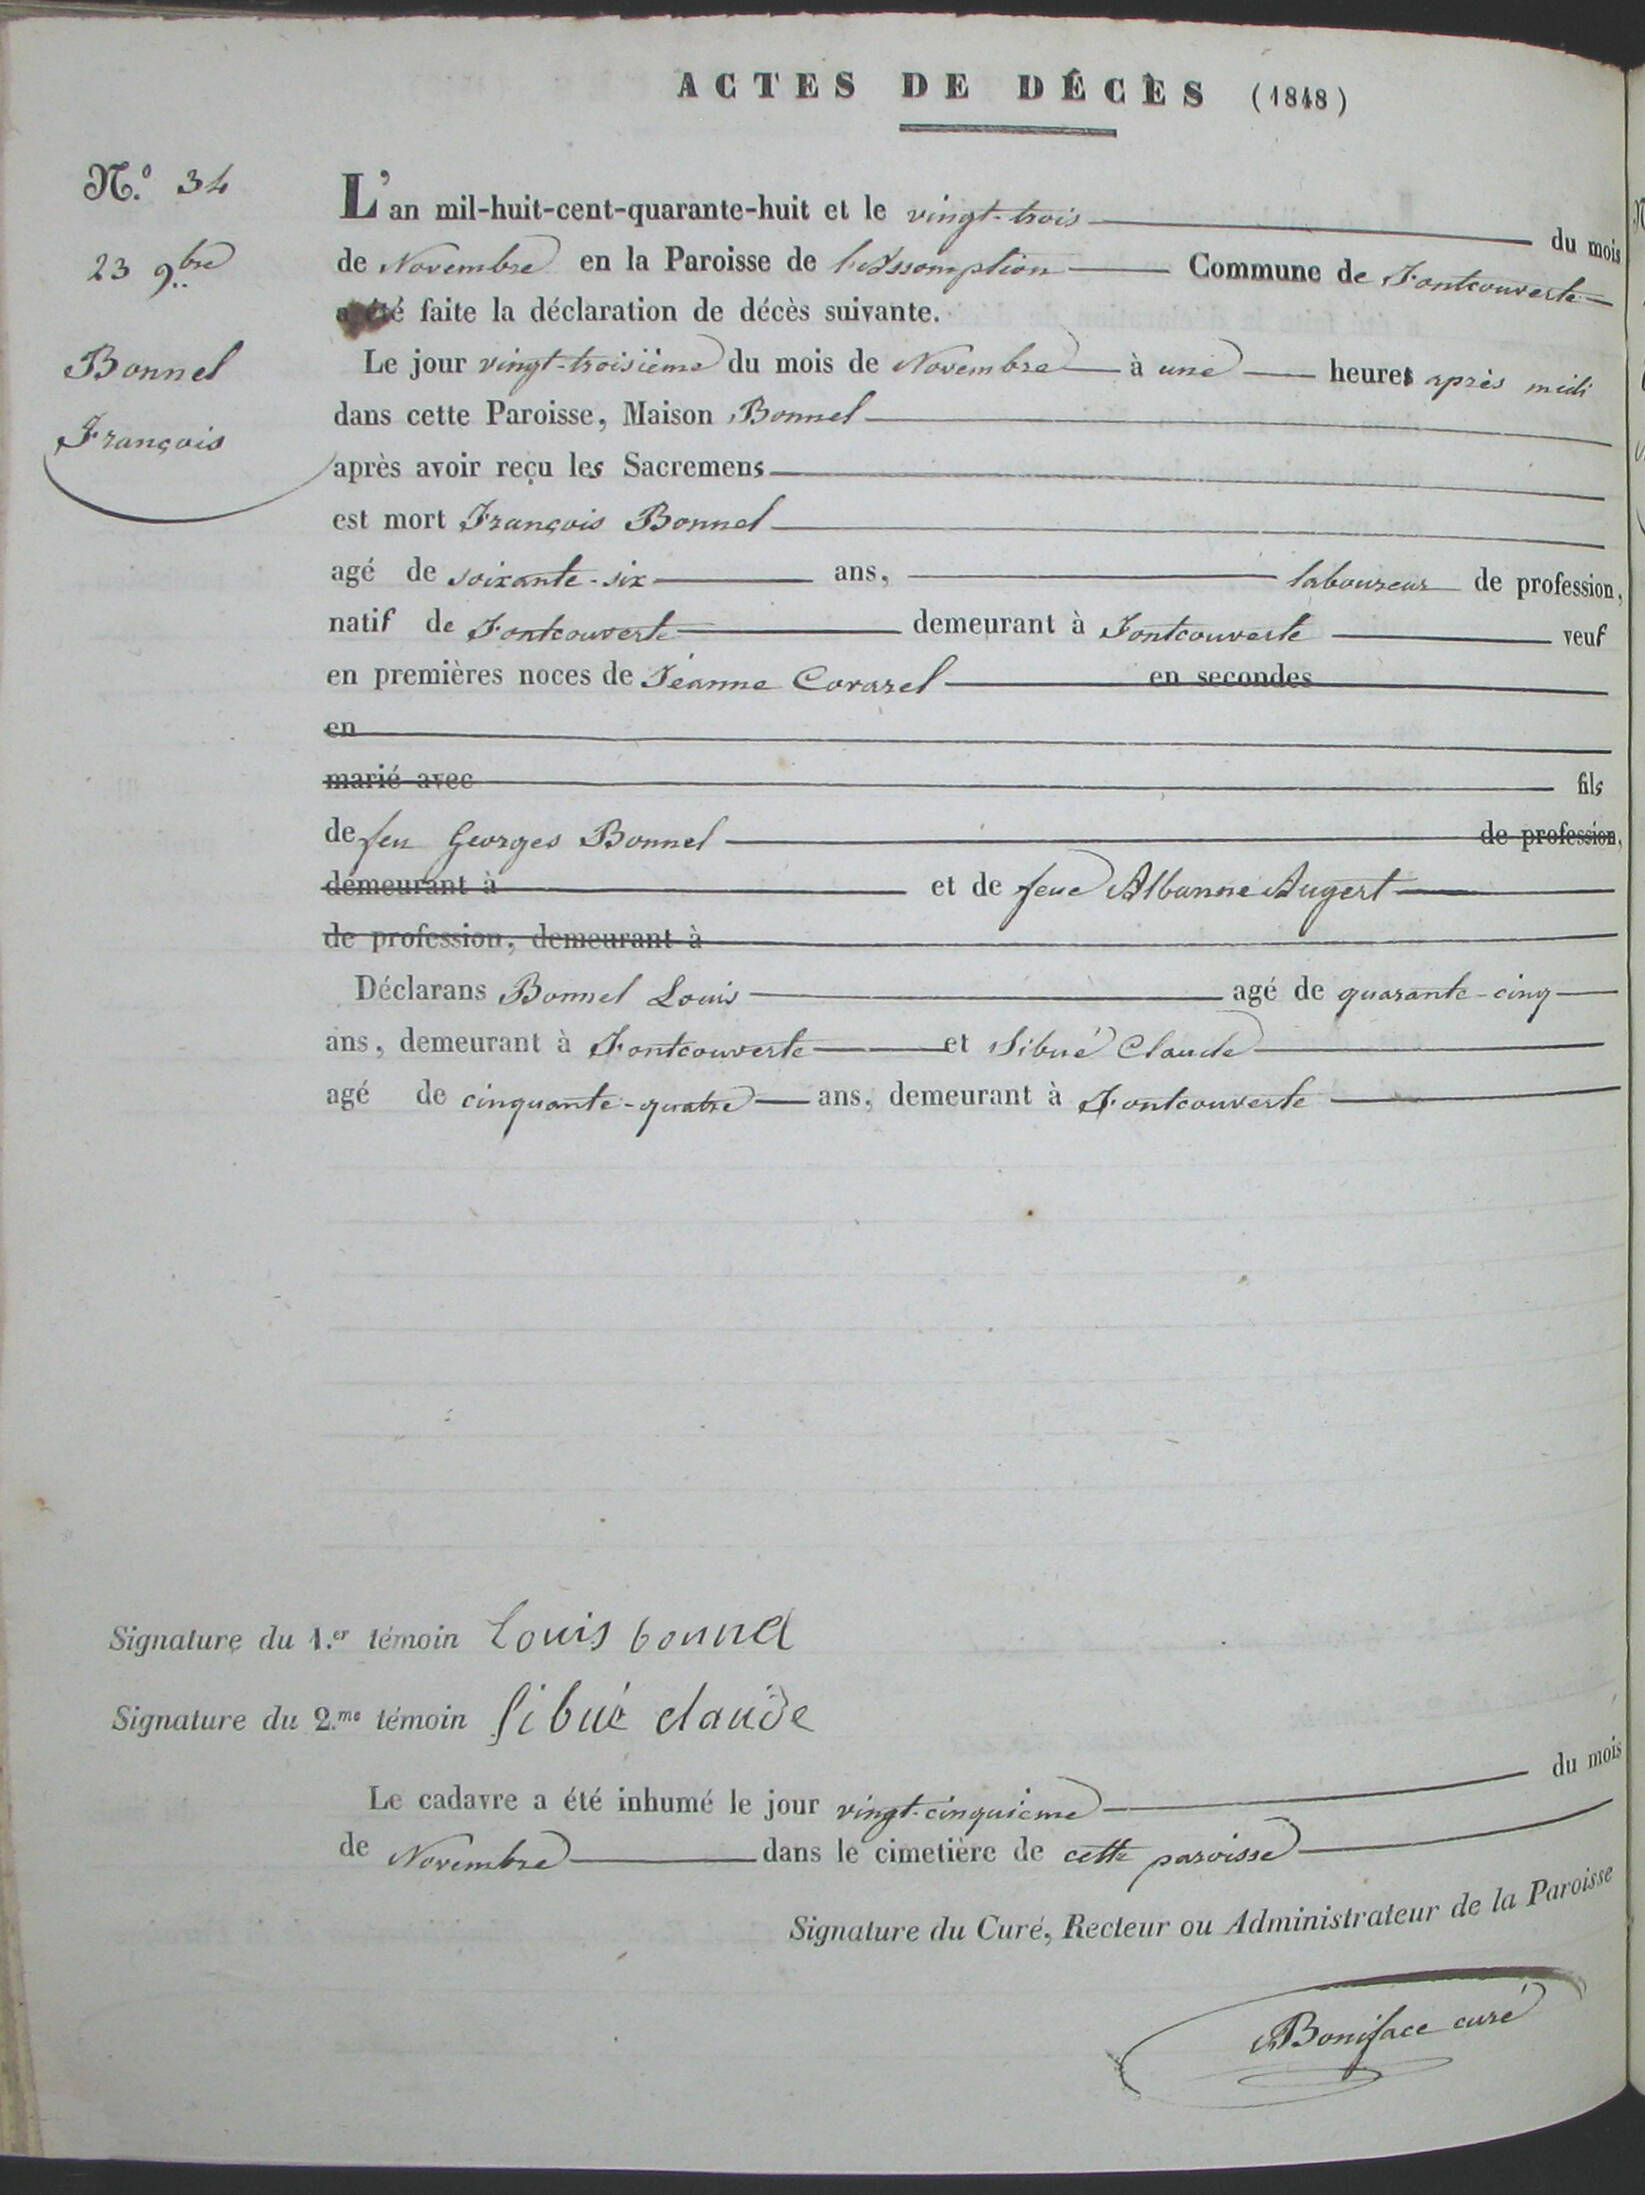 ACTES DE DÉCÈS (1848)
N.º 34
23 9.bre
Bonnel
François
L'an mil-huit-cent-quarante-huit et le vingt-trois du mois
de Novembre en la Paroisse de l'Assomption Commune de Fontcouverte
a été faite la déclaration de décès suivante.
Le jour vingt-troisième du mois de Novembre à une heures après midi
dans cette Paroisse, Maison Bonnel
après avoir reçu les Sacremens
est mort François Bonnel
agé de soixante-six ans, laboureur de profession,
natif de Fontcouverte demeurant à Fontcouverte veuf
en premières noces de Jéanne Covarel en secondes
en
marié avec fils
de feu Georges Bonnel de profession,
demeurant à et de feue Albanne Augert
de profession, demeurant à
Déclarans Bonnel Louis agé de quarante-cinq
ans, demeurant à Fontcouverte et Sibué Claude
agé de cinquante-quatre ans, demeurant à Fontcouverte
Signature du 1.er témoin Louis bonnel
Signature du 2.me témoin Sibué claude
Le cadavre a été inhumé le jour vingt-cinquième du mois
de Novembre dans le cimetière de cette paroisse
Signature du Curé, Recteur ou Administrateur de la Paroisse
Boniface curé